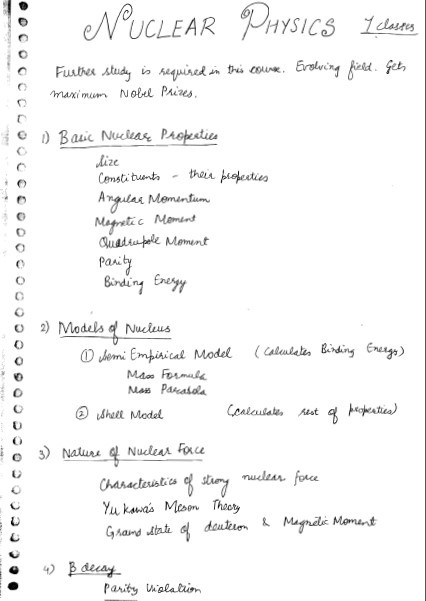 NUCLEAR PHYSICS 7 classes
Further study is required in this course. Evolving field. Gets
maximum Nobel Prizes.
1) Basic Nuclear Properties
Size
Constituents - their properties
Angular Momentum
Magnetic Moment
Quadrupole Moment
Parity
Binding Energy
2) Models of Nucleus
① Semi Empirical Model (Calculates Binding Energy)
Mass Formula
Mass Parabola
② Shell Model (Calculates rest of properties)
3) Nature of Nuclear Force
Characteristics of strong nuclear force
Yukawa's Meson Theory
Ground state of deuteron & Magnetic Moment
4) β decay
Parity Violation